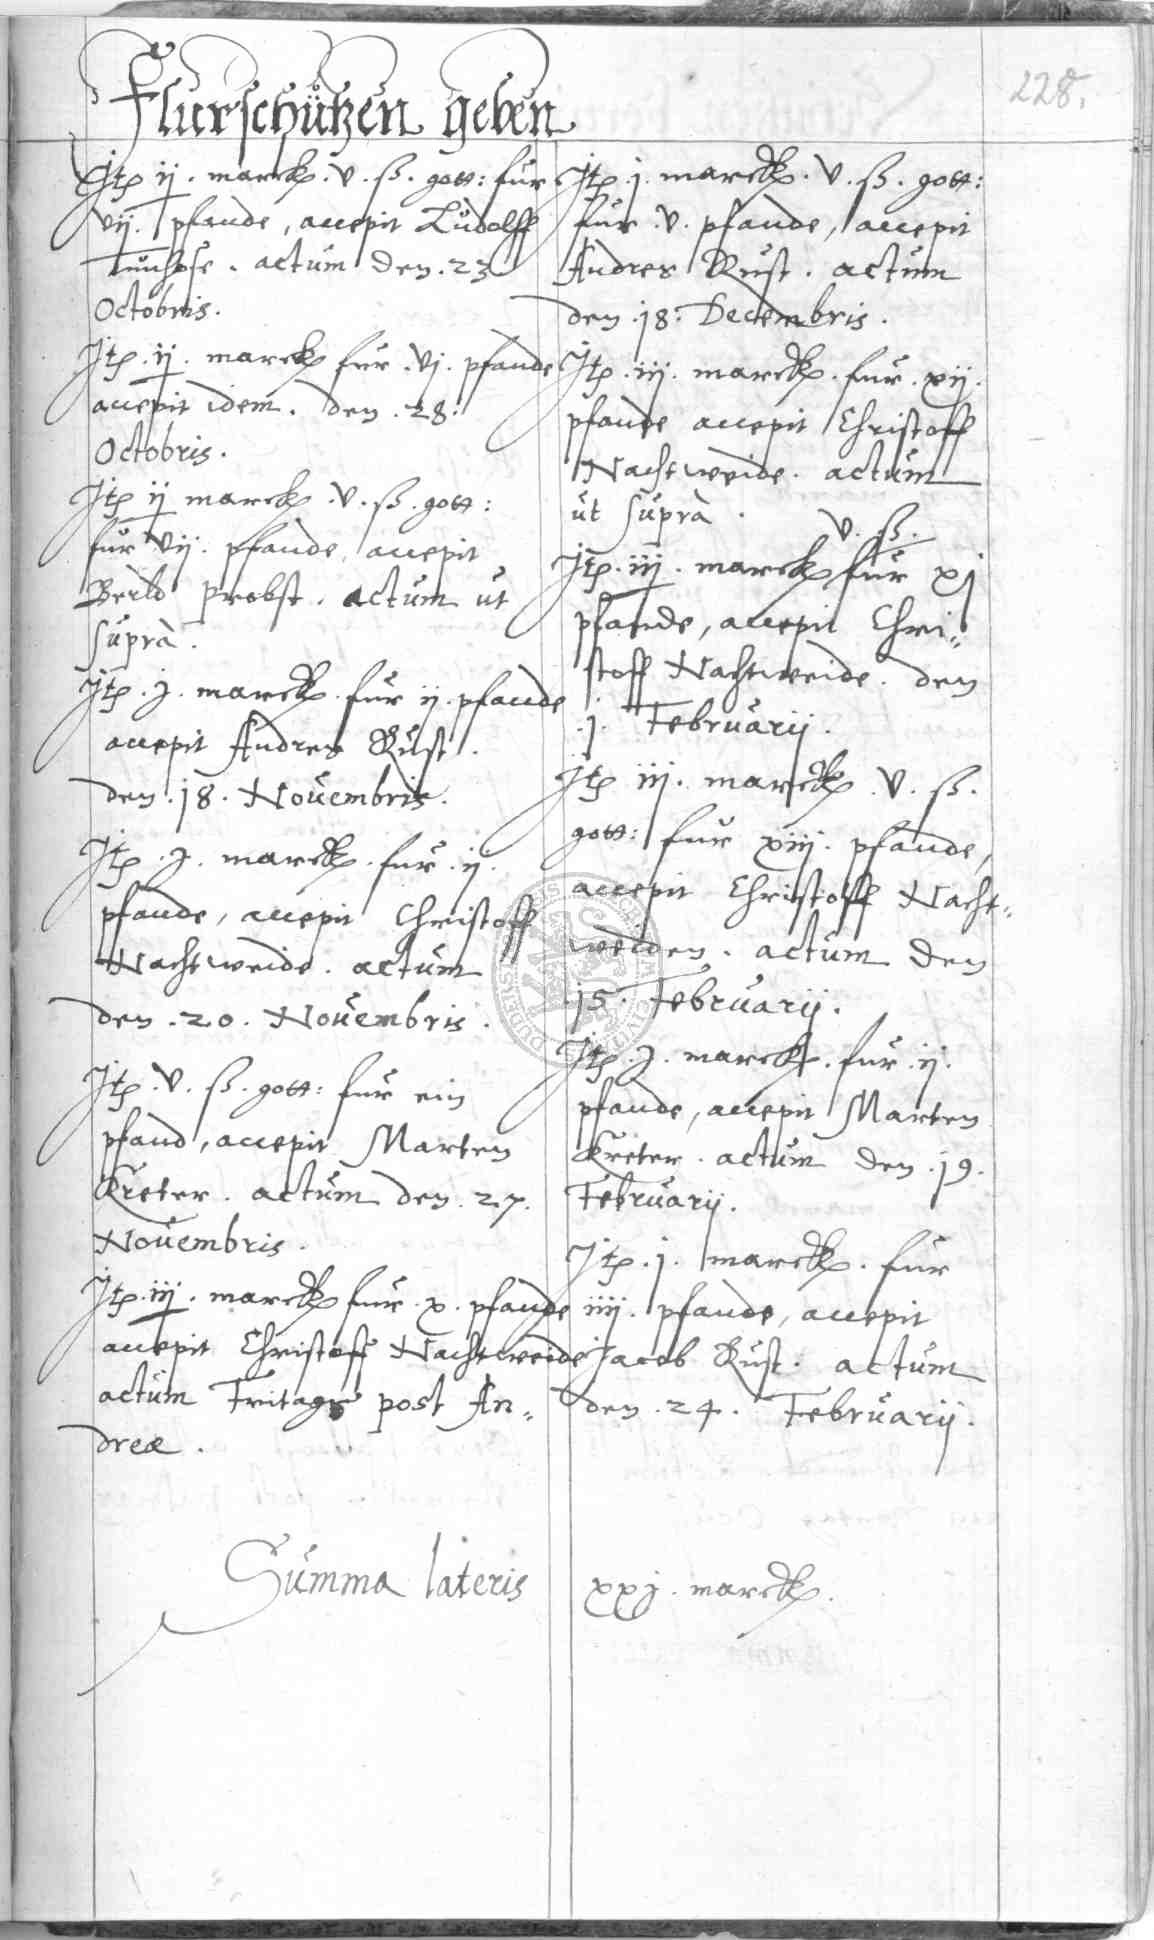 Flurschützen geben
228.
Jtp ij. marck. v. ß. gott: für
vij. pfande, accepit Ludolff
actum den. 23
Octobris.
Jtp. ij. marck für. vj. pfande
accepit idem. den. 28.
Octobris.
Jtp ij marck. v. ß. gott:
für vij. pfande, accepit
Berld Probst. actum ut
supra.
Jtp. j. marck für ij. pfande
accepit Andres Rust.
den. 18. Novembris.
Jtp. j. marck. für. ij.
pfande, accepit Christoff
Nachtweide. actum
den. 20. Novembris.
Jtp. v. ß. gott: für ein
pfand, accepit Marten
Kreter. actum den. 27.
Novembris.
Jtp. iij. marck für. x. pfande
accepit Christoff Nachtweide
actum Fritags post An„
dreæ.
Jtp. j. marck. v. ß. gott:
für. v. pfande, accepit
Andres Rust. actum
den. 18. Decembris.
Jtp. iij. marck. für. xij.
pfande accepit Christoff
Nachtweide. actum
ut supra.
v. ß.
Jtp. iij. marck für xj
pfande, accepit Chri„
stoff Nachtweide. den
.j. Februarij.
Jtp iij. marck v. ß.
gott: für xiij. pfande,
accepit Christoff Nacht„
weiden. actum den
15. Februarij.
Jtp. j. marck. für. ij.
pfande, accepit Marten
Kreter. actum den. 19.
Februarij.
Jtp. j. marck. für
iiij. pfande, accepit
Jacob Rust. actum
den. 24. Februarij.
Summa lateris xxj. marck.